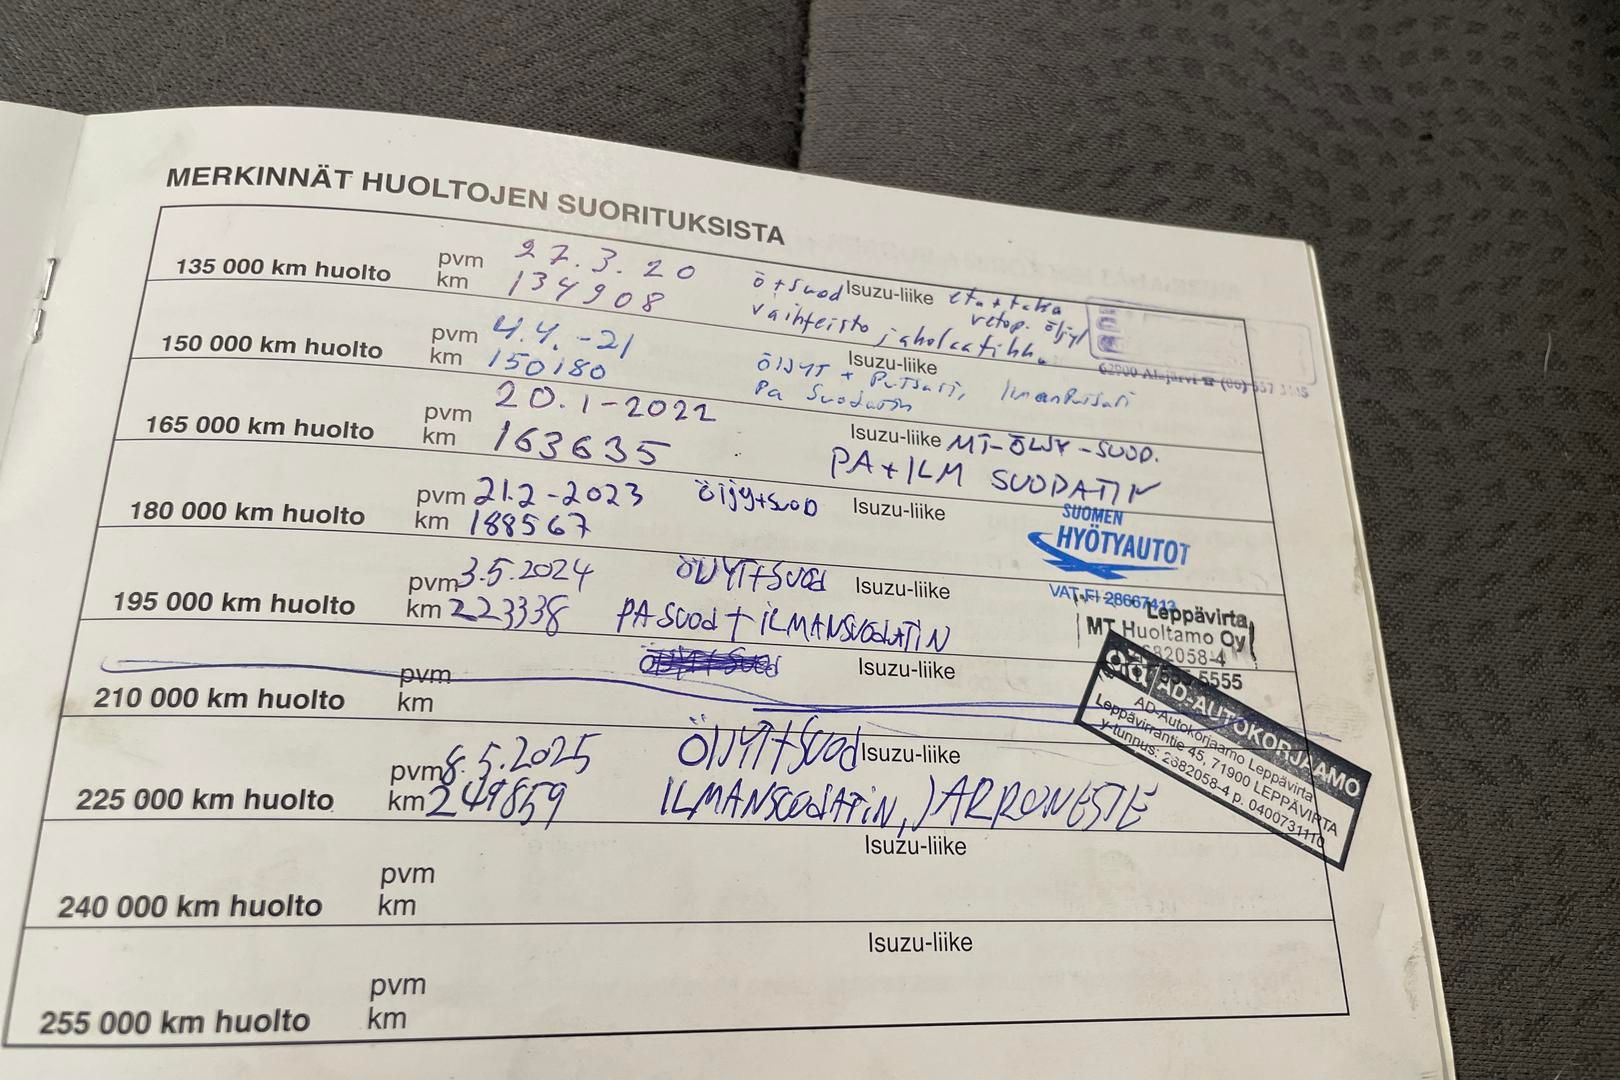 MERKINNÄT HUOLTOJEN SUORITUKSISTA
135 000 km huolto
pvm 27.3.20
km 134908
Isuzu-liike
ö+suod etu+taka
vaihteisto jakolaatikk. vetop. öljyt
62900 Alajärvi ☎ (06) 557
150 000 km huolto
pvm 4.4.-21
km 150180
Isuzu-liike
öljyt +
Pa Suodatin
165 000 km huolto
pvm 20.1-2022
km 163635
Isuzu-liike MT-ÖLJY-SUOD.
PA+ILM SUODATIN
180 000 km huolto
pvm 21.2-2023 öljy+suod
km 188567
Isuzu-liike
SUOMEN
HYÖTYAUTOT
VAT.FI 28667413
195 000 km huolto
pvm 3.5.2024 ÖLJYT+SUOD
km 223338 PA SUOD + ILMANSUODATIN
Isuzu-liike
Leppävirta
MT Huoltamo Oy
82058-4
5555
210 000 km huolto
pvm
km
Isuzu-liike
AD-AUTOKORJAAMO
AD-Autokorjaamo Leppävirta
Leppävirrantie 45, 71900 LEPPÄVIRTA
y-tunnus: 2682058-4 p. 0400731110
225 000 km huolto
pvm 8.5.2025 ÖLJYT+SUOD
km 249859 ILMANSUODATIN, JARRUNESTE
Isuzu-liike
240 000 km huolto
pvm
km
Isuzu-liike
255 000 km huolto
pvm
km
Isuzu-liike